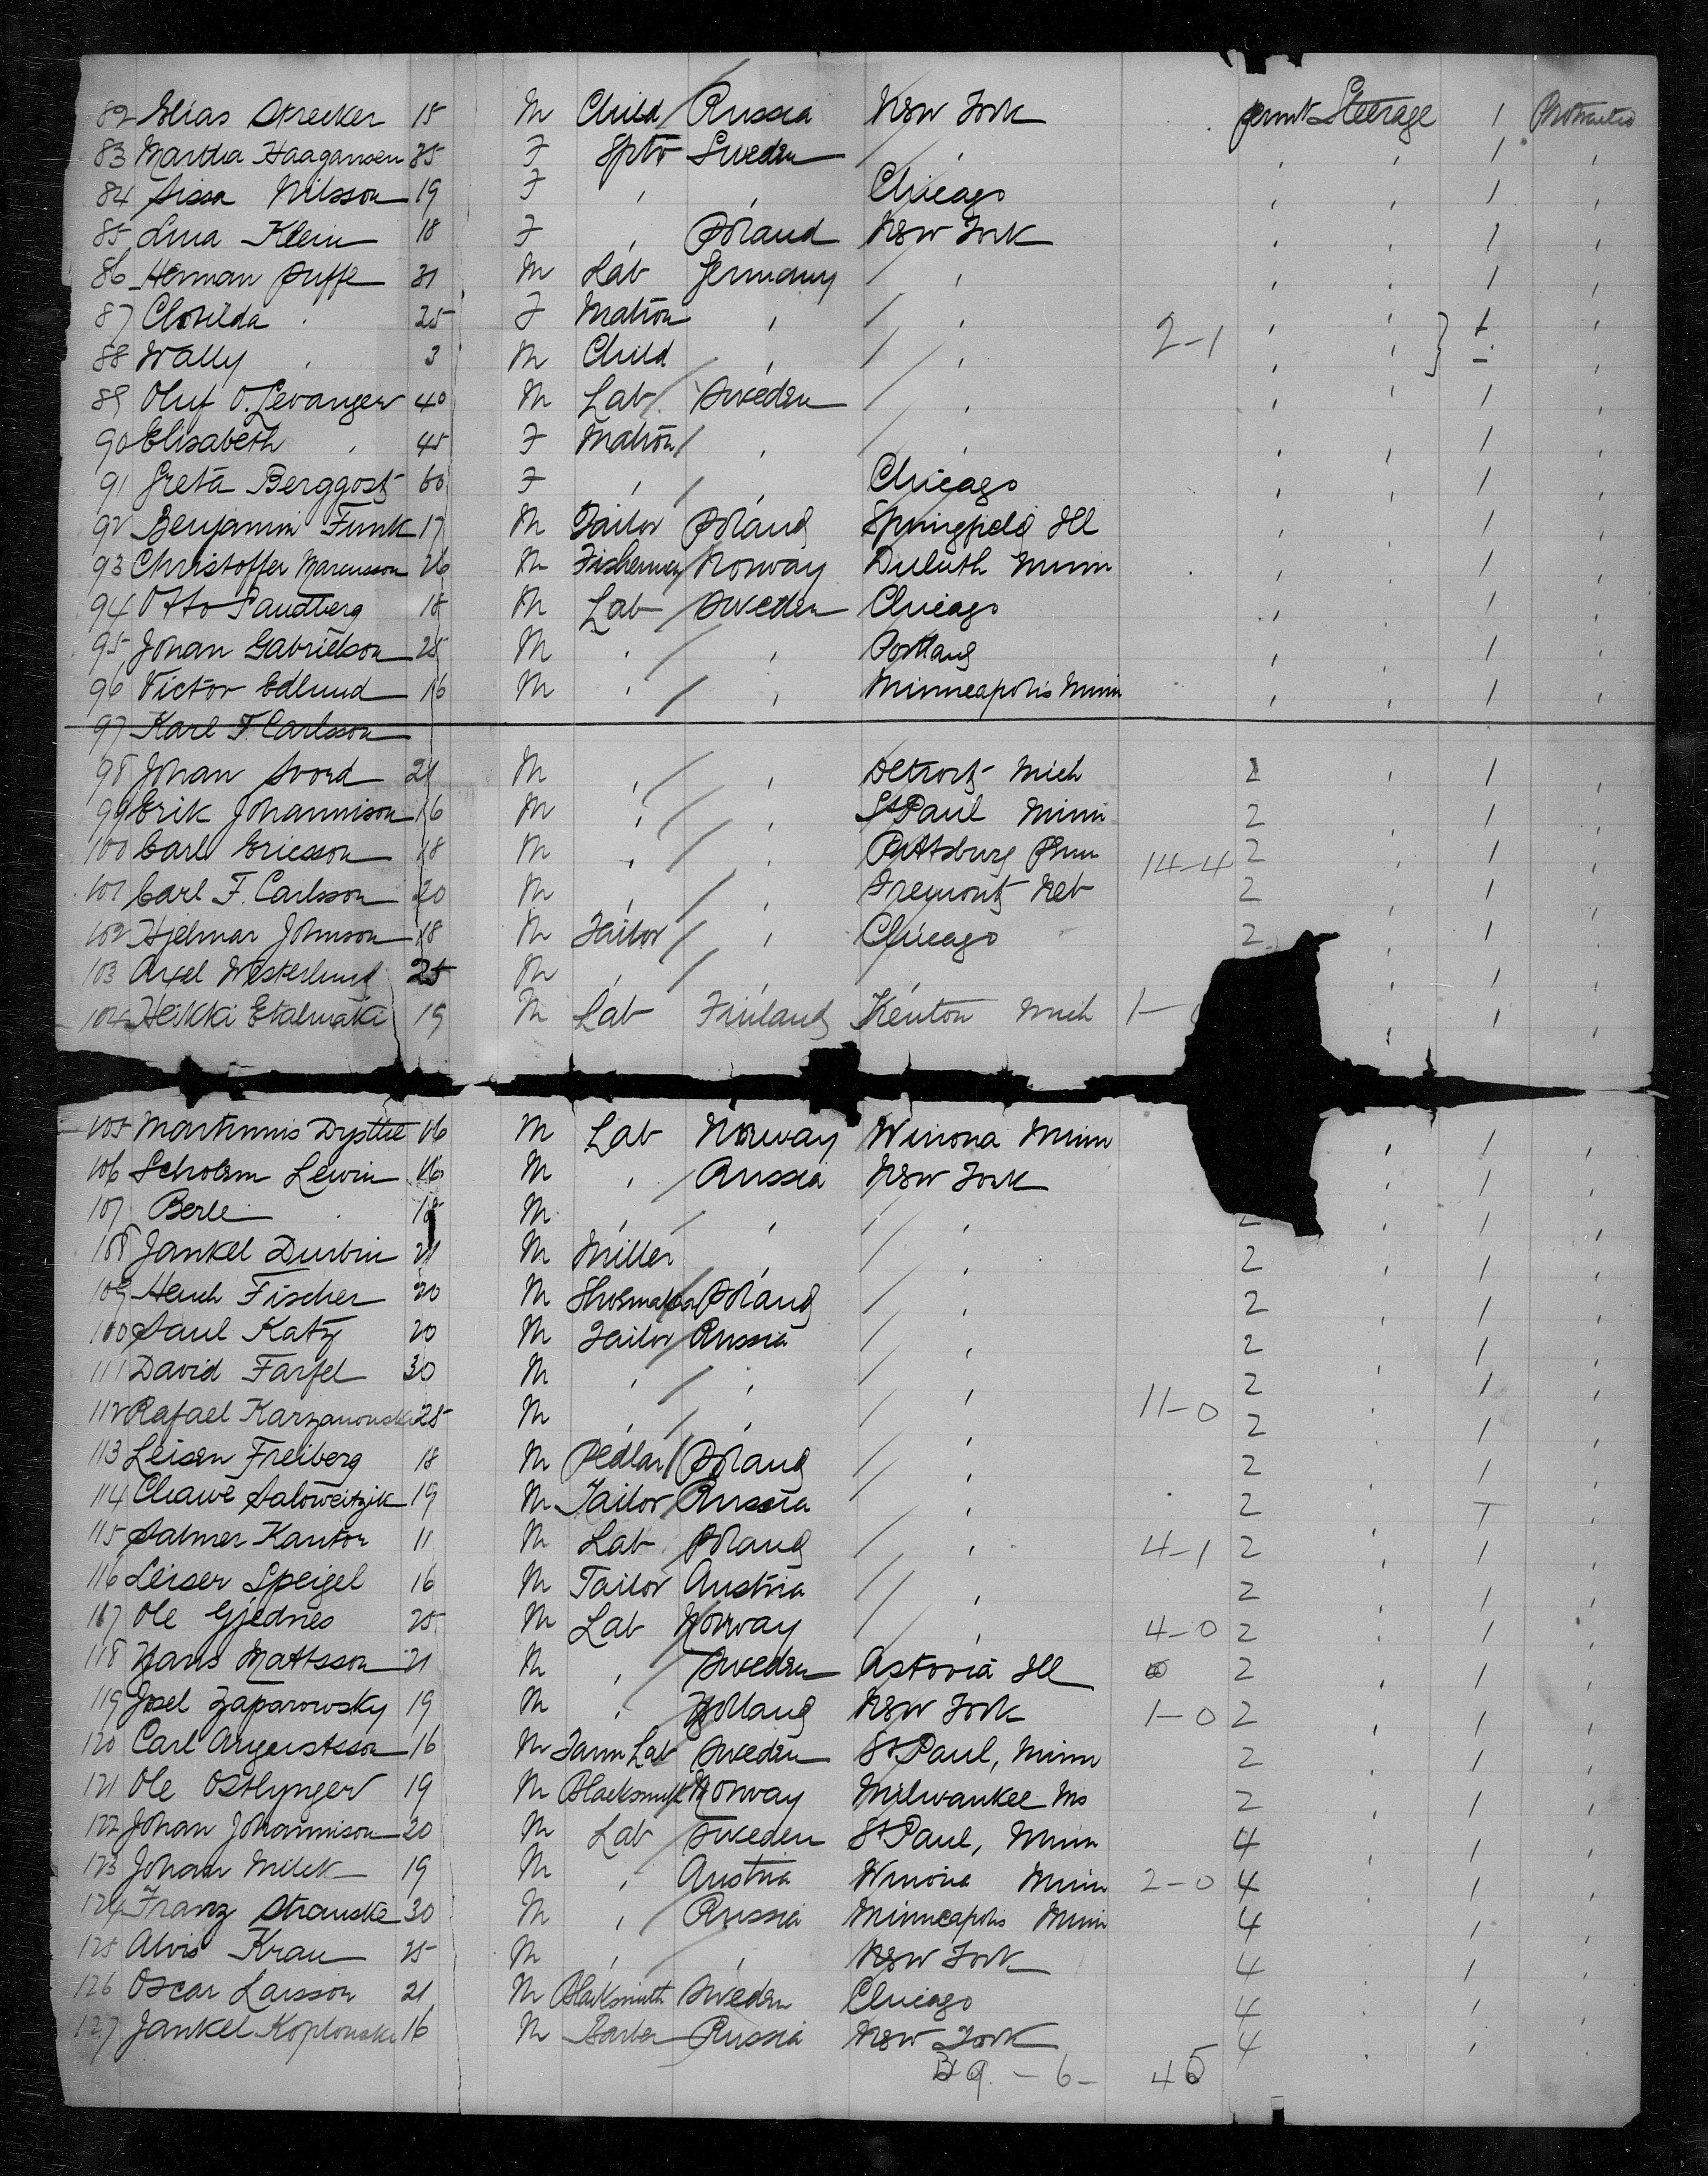 82 Elias Strecker 15 M Child Russia New York permt Steerage 1 Protracted
83 Martha Haagansen 35 F Sptr Sweden / "
84 Sissa Nilsson 19 F " " Chicago " " 1 "
85 Lina Klein 18 F " Poland New York " " 1 "
86 Herman Puffe 31 M Lab Germany / " " " 1 "
87 Clotilda " 25 F Matron " / " " " 1 "
88 Wally " 3 M Child " / " 2-1 " "
89 Oluf O. Levanger 40 M Lab Sweden / " " " 1 "
90 Elisabeth " 45 F Matron " / " " " 1 "
91 Greta Berggost 60 F " " Chicago " " 1 "
92 Benjamin Funk 17 M Tailor Poland Springfield Ill " " 1 "
93 Christoffer Marcusson 26 M Fisherman Norway Duluth Minn " " 1 "
94 Otto Sandberg 18 M Lab Sweden Chicago " " 1 "
95 Johan Gabrielson 25 M " " Portland " " 1 "
96 Victor Edlund 16 M " " Minneapolis Minn " " 1 "
97 Karl F. Carlsson
98 Johan Svord 21 M " " Detroit Mich 2 " 1 "
99 Erik Johannison 16 M " " St Paul Minn 2 " 1 "
100 Carl Ericsson 18 M " " Pittsburg Penn 14-4 2 " 1 "
101 Carl F. Carlsson 20 M " " Fremont Neb 2 " 1 "
102 Hjelmar Johnson 18 M Tailor " Chicago 2 " 1 "
103 Axel Westerlund 25 M " " " " 1 "
104 Heikki Etalmaki 19 M Lab Finland Kenton Mich 1- " 1 "
105 Martinnus Dysthe 16 M Lab Norway Winona Minn " 1 "
106 Scholem Lewin 16 M " Russia New York " 1 "
107 Berle " M " " / " 2 " 1 "
108 Jankel Durbin 21 M Miller " / " 2 " 1 "
109 Hench Fischer 20 M Shoemaker Poland / " 2 " 1 "
110 Saul Katz 20 M Tailor Russia / " 2 " 1 "
111 David Farfel 30 M " " / " 2 " 1 "
112 Rafael Karzanouski 25 M " " / " 11-0 2 " 1 "
113 Leisen Freiberg 18 M Pedlar Poland / " 2 " 1 "
114 Chawe Saloweitzik 19 M Tailor Russia / " 2 " 1 "
115 Salmer Kantor 11 M Lab Poland / " 4-1 2 " 1 "
116 Leiser Speigel 16 M Tailor Austria / " 2 " 1 "
117 Ole Gjednes 25 M Lab Norway / " 4-0 2 " 1 "
118 Hans Mattsson 21 M " Sweden Astoria Ill 2 " 1 "
119 Josel Zaparowsky 19 M " Holland New York 1-0 2 " 1 "
120 Carl Augustsson 16 M Farm Lab Sweden St Paul, Minn 2 " 1 "
121 Ole Ostlynger 19 M Blacksmith Norway Milwaukee 2 " 1 "
122 Johan Johannison 20 M Lab Sweden St Paul, Minn 4 " 1 "
123 Johan Milek 19 M " Austria Winona Minn 2-0 4 " 1 "
124 Franz Stranske 30 M " Russia Minneapolis Minn 4 " 1 "
125 Alvis Krau 25 M " " New York 4 " 1 "
126 Oscar Larsson 21 M Blacksmith Sweden Chicago 4 " 1 "
127 Jankel Koplouski 16 M Barber Russia New York 4 " 1 "
39 - 6 - 45